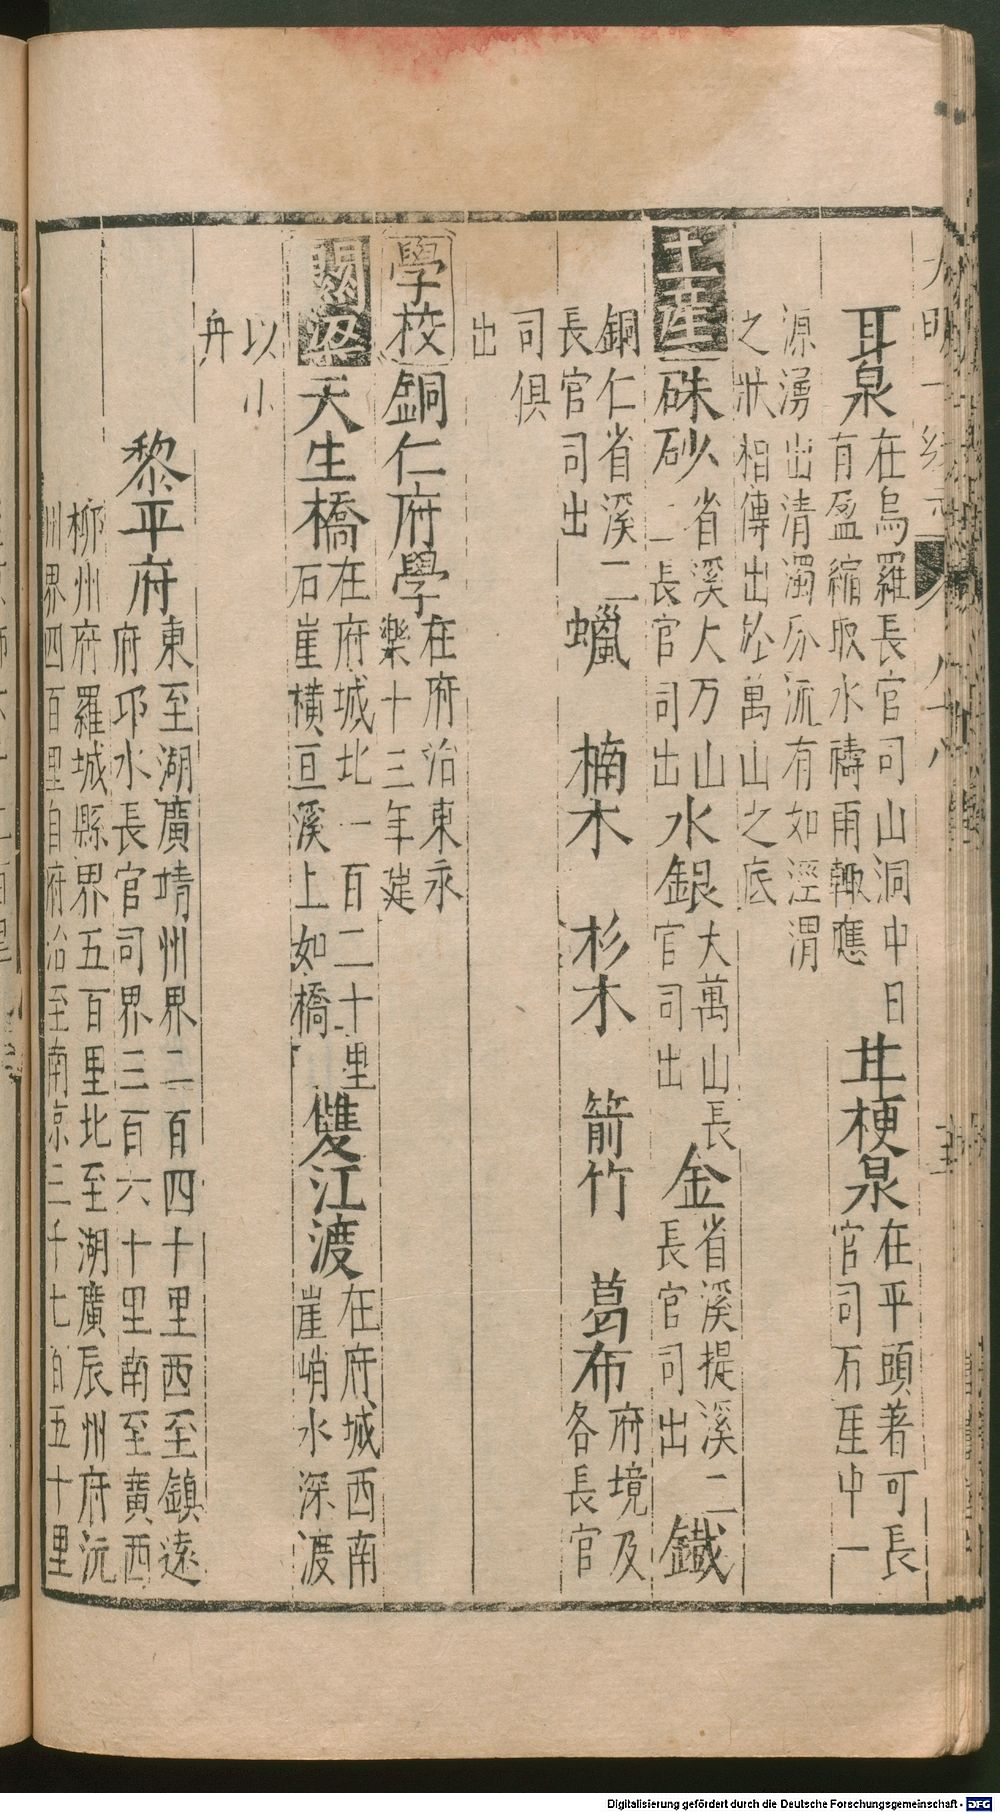 大明一統志 八十八
耳泉在烏羅長官司山洞中日
有盈縮取水禱雨輙應
廿梗泉在平頭著可長
官司石崖中一
源湧出清濁分流有如涇渭
之狀相傳出於萬山之底
土產硃砂省溪大万山
二長官司出
水銀大萬山長
官司出
金省溪提溪二
長官司出
鐵
銅仁省溪二
長官司出
蠟 楠木 杉木 箭竹 葛布府境及
各長官
司俱
出
學校銅仁府學在府治東永
樂十三年建
關梁天生橋在府城北一百二十里
石崖橫亘溪上如橋
雙江渡在府城西南
崖峭水深渡
以小
舟
黎平府東至湖廣靖州界二百四十里西至鎮遠
府邛水長官司界三百六十里南至廣西
柳州府羅城縣界五百里北至湖廣辰州府沅
州界四百里自府治至南京三千七百五十里
Digitalisierung gefördert durch die Deutsche Forschungsgemeinschaft - DFG